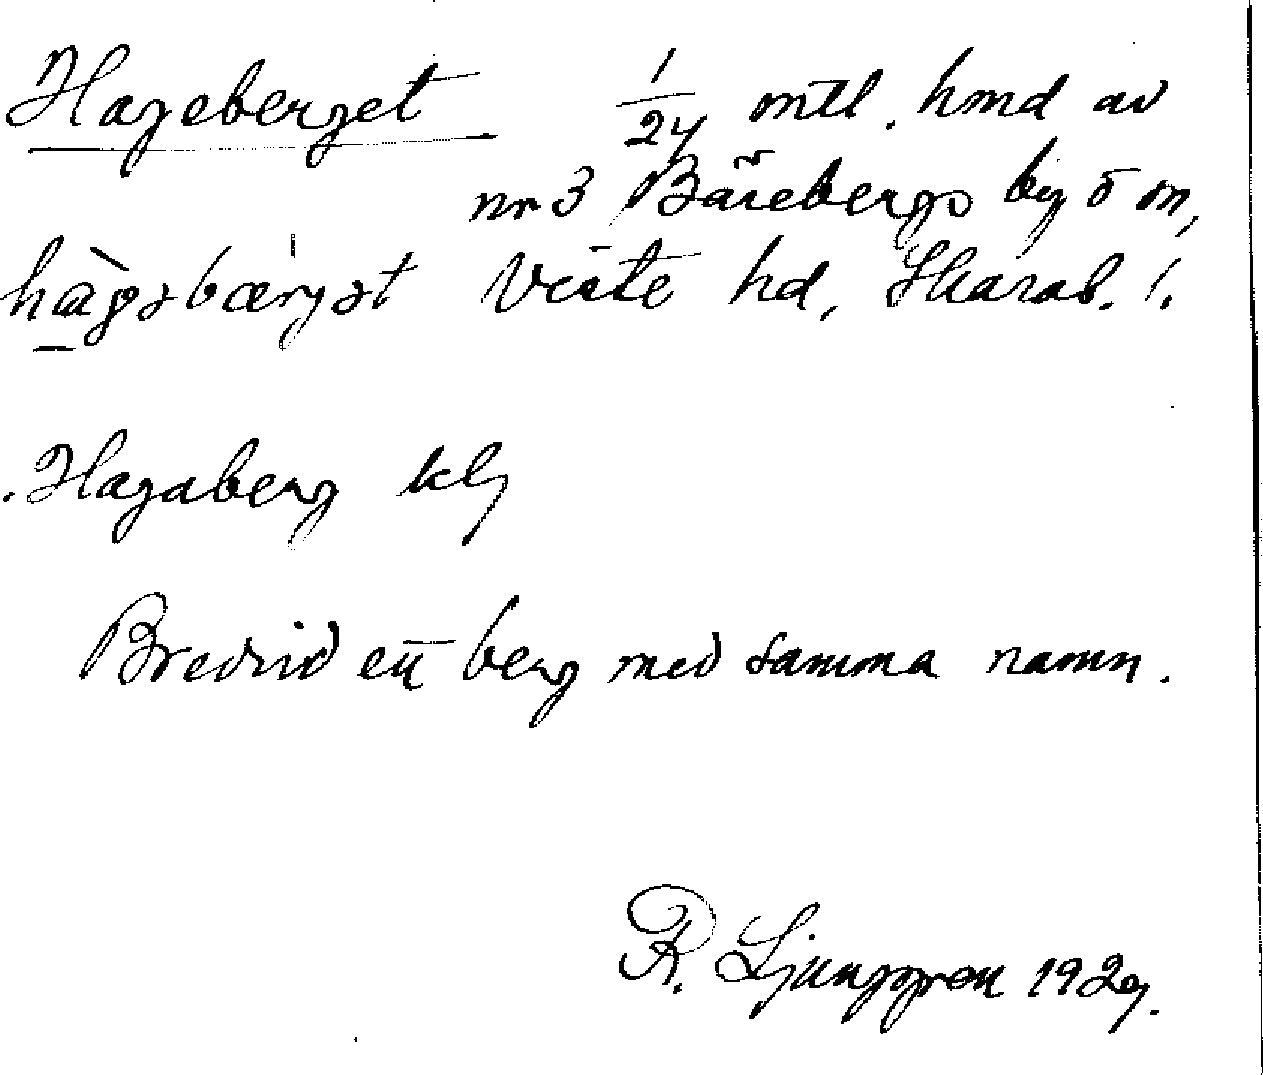 Hageberget 1/24 mtl. hmd av
nr 3 Bärebergs by o sn,
hàgəbærjət Viste hd, Skarab. l.
Hagaberg klj
Bredvid ett berg med samma namn.
R. Ljunggren 1929.